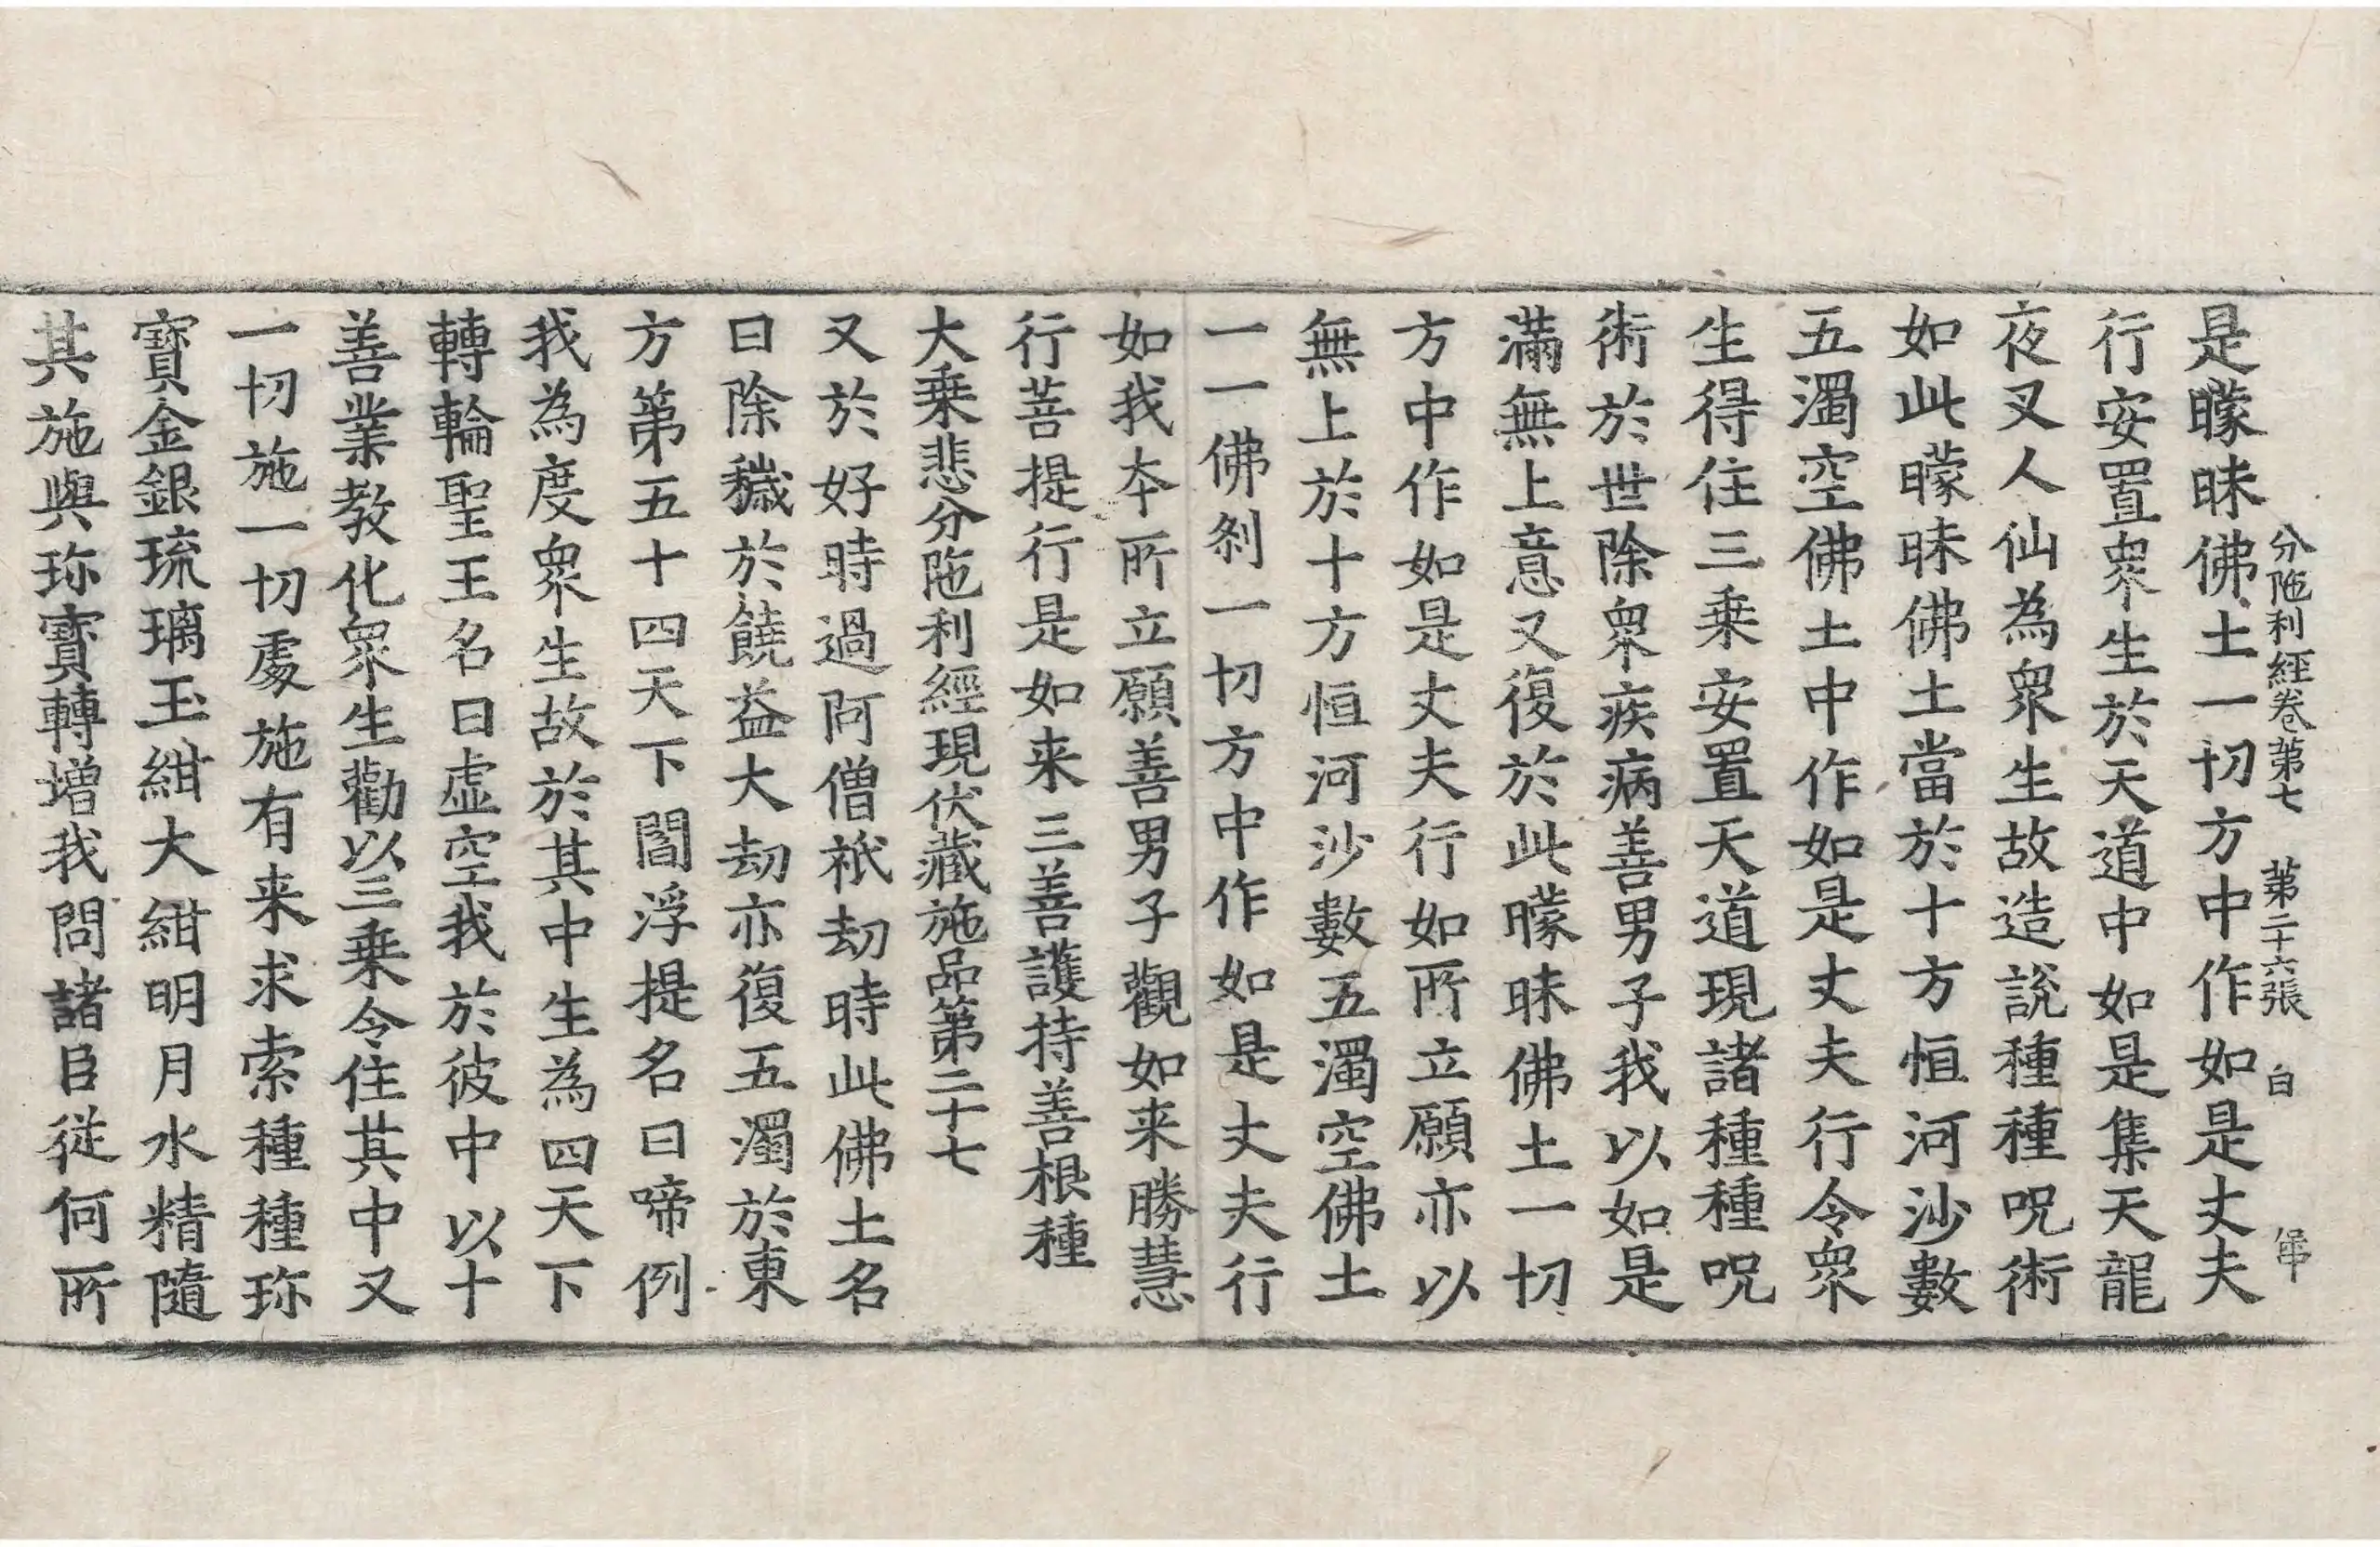 分陁利經卷第七　第二十六張　白
是矇昧佛土一切方中作如是丈夫
行安置衆生於天道中如是集天龍
夜叉人仙為衆生故造說種種呪術
如此矇昧佛土當於十方恒河沙數
五濁空佛土中作如是丈夫行令衆
生得住三乗安置天道現諸種種呪
術於世除衆疾病善男子我以如是
滿無上意又復於此矇昧佛土一切
方中作如是丈夫行如所立願亦以
無上於十方恒河沙數五濁空佛土
一一佛刹一切方中作如是丈夫行
如我夲所立願善男子觀如来勝慧
行菩提行是如来三善護持善根種
大乗悲分陁利經現伏藏施品第二十七
又於好時過阿僧祇劫時此佛土名
曰除穢於饒益大劫亦復五濁於東
方第五十四天下閻浮提名曰啼例
我為度衆生故於其中生為四天下
轉輪聖王名曰虚空我於彼中以十
善業教化衆生勸以三乗令住其中又
一切施一切處施有来求索種種珎
寶金銀琉璃玉紺大紺明月水精隨
其施與珎寶轉增我問諸臣従何所